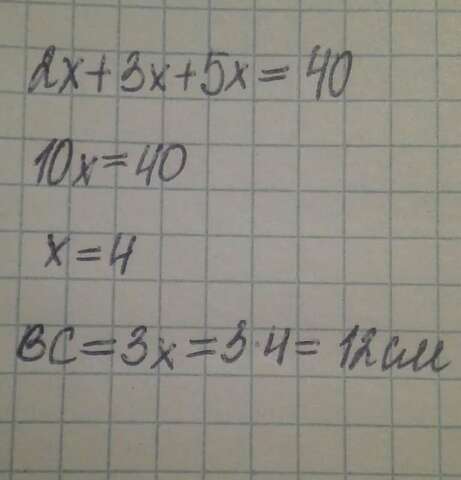 2x+3x+5x=40
10x=40
x=4
BC=3x=3·4=12см